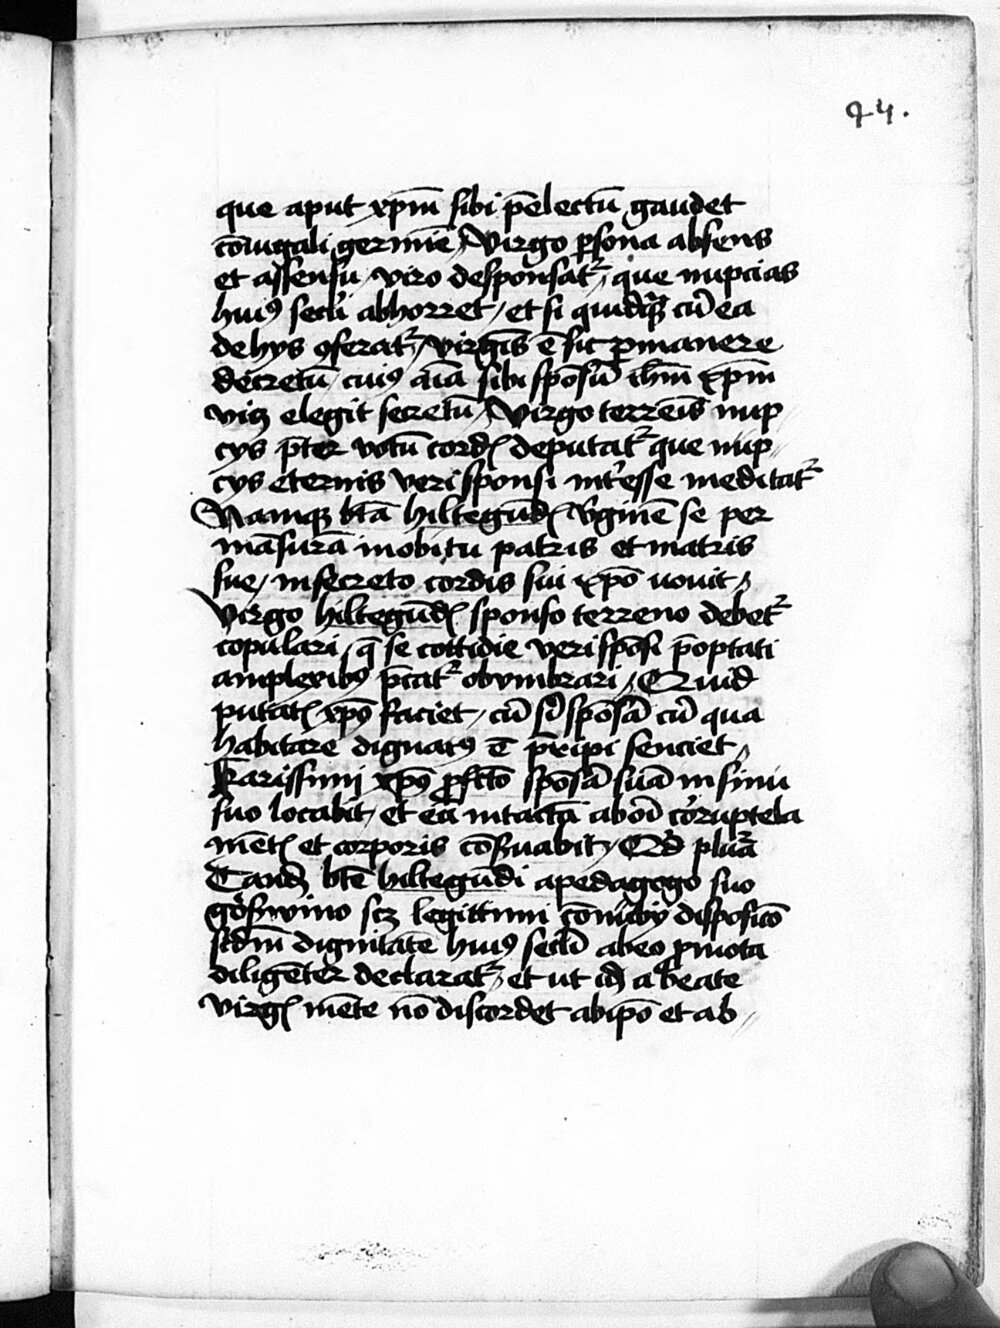 94.
que aput xpm̄ sibi p̄electū gaudet
cōiugali germīe Virgo psona absens
et assensu viro desponsat᷑ que nupcias
huiꝰ secli abhorret et si quidqͣ cū ea
de hys ꝯferat᷑ Virgīs ē sic ꝑmanere
decretū cuiꝰ aīa sibi spōsū ihm̄ xpm̄
elegit secretū Virgo terrēis nup
cys p̄ter votū cordꝭ deputat᷑ que nup
cys eternis veri sponsi int̓esse meditat᷑
Namqꝫ btā hiltegūdꝭ v̓ginē se per
māsurā in obitu patris et matris
sue in secreto cordis sui xpō vouit
Virgo hiltegūdꝭ sponso terreno debet᷑
copulari q̄ se cottidie veri spōsi p̄optati
amplexibꝰ p̄cat᷑ obvmbrari Quid
putatꝭ xpō faciet cū spōsā cū qua
habitare dignatꝰ ē p̄ripi senciet
Karissimi xpō ꝓfcto spōsā suā in sinu
suo locabit et eā intactā ab oī corruptela
mētꝭ et corporis cōẞuabit Qd̓ plura
Tandē btē hiltegūdi a pedagogo suo
goswino scꝫ legittimi disposicō
scdm̄ dignitatē huiꝰ secli ab eo ꝓmota
diligēter declarat᷑ et ut id a beate
virgꝭ mēte nō discordet ab ipō et ab